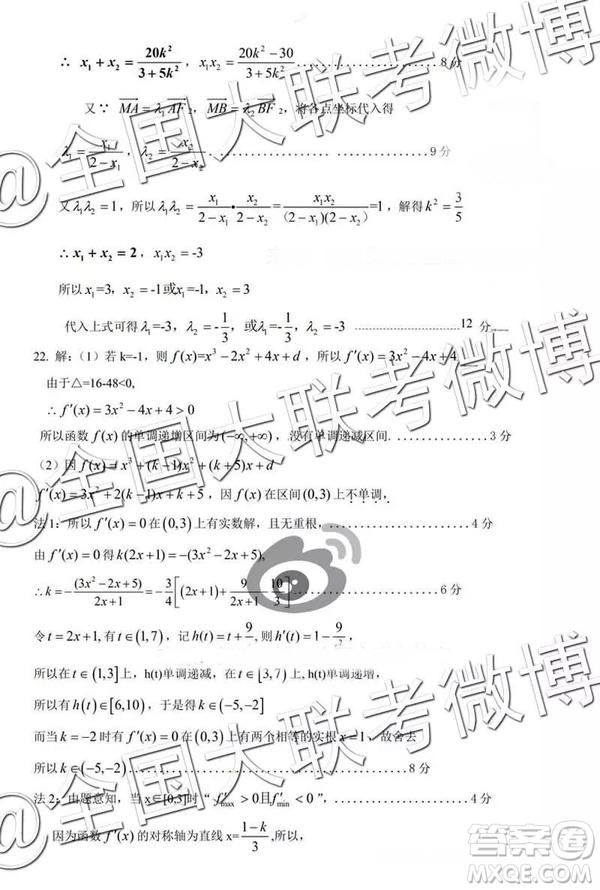 ∴ x₁ + x₂ = 20k²/(3+5k²), x₁x₂ = (20k²-30)/(3+5k²)..................8分
又∵ MA = λ₁AF₂, MB = λ₂BF₂, 将各点坐标代入得
λ₁ = x₁/(2-x₁), λ₂ = x₂/(2-x₂)..............................9分
又λ₁λ₂ = 1, 所以 x₁/(2-x₁)·x₂/(2-x₂) = x₁x₂/(2-x₁)(2-x₂) =1, 解得 k² = 3/5
∴ x₁ + x₂ = 2, x₁x₂ = -3
所以 x₁=3, x₂ = -1或x₁=-1, x₂ = 3
代入上式可得 λ₁=-3, λ₂ = -1/3, 或λ₁=-1/3, λ₂ = -3 ..................12 分
22. 解:(1)若 k=-1, 则 f(x)=x³-2x²+4x+d, 所以 f′(x)=3x²-4x+4
由于△=16-48<0,
∴ f′(x)=3x²-4x+4>0
所以函数 f(x) 的单调递增区间为(-∞,+∞), 没有单调递减区间................3 分
(2)因 f(x)=x³+(k-1)x²+(k+5)x+d
f′(x)=3x²+2(k-1)x+k+5, 因 f(x) 在区间(0,3)上不单调,
法1:所以 f′(x)=0 在(0,3)上有实数解, 且无重根,....................4 分
由 f′(x)=0 得 k(2x+1)=-(3x²-2x+5),
∴ k=-(3x²-2x+5)/(2x+1)=-3/4[(2x+1)+9/(2x+1)-10/3]....................6 分
令 t=2x+1, 有 t∈(1,7), 记 h(t)=t+9/t, 则 h′(t)=1-9/t²,
所以在 t∈(1,3]上, h(t)单调递减, 在 t∈[3,7)上, h(t)单调递增,
所以有 h(t)∈[6,10), 于是得 k∈(-5,-2]
而当 k=-2时有 f′(x)=0 在(0,3)上有两个相等的实根 x=1, 故舍去
所以 k∈(-5,-2)
法2:由题意知, 当 x∈[0,3]时“ f′max>0且f′min<0 ”,....................4 分
因为函数 f′(x) 的对称轴为直线 x=(1-k)/3,所以,
@全国大联考微博
@全国大联考微博
@全国大联考微博
答案圈
MXQE.COM